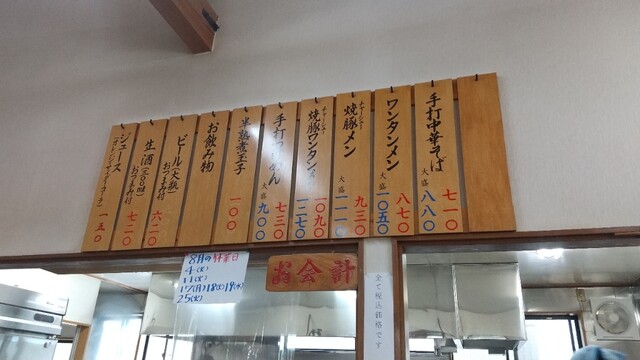 手打中華そば 七一〇
大盛 八八〇
ワンタンメン 八七〇
大盛 一〇五〇
チャーシュー
焼豚メン 九三〇
大盛 一一一〇
チャーシュー
焼豚ワンタンメン 一〇九〇
大盛 一二七〇
手打つけめん 七三〇
大盛 九〇〇
半熟煮玉子 一〇〇
お飲み物
ビール(大瓶)
おつまみ付 六二〇
生酒(三〇〇ml)
おつまみ付 七二〇
ジュース
一五〇
8月の休業日
4(火)
11(火)
17(月)18(火)19(水)
25(火)
お会計
全て税込価格です